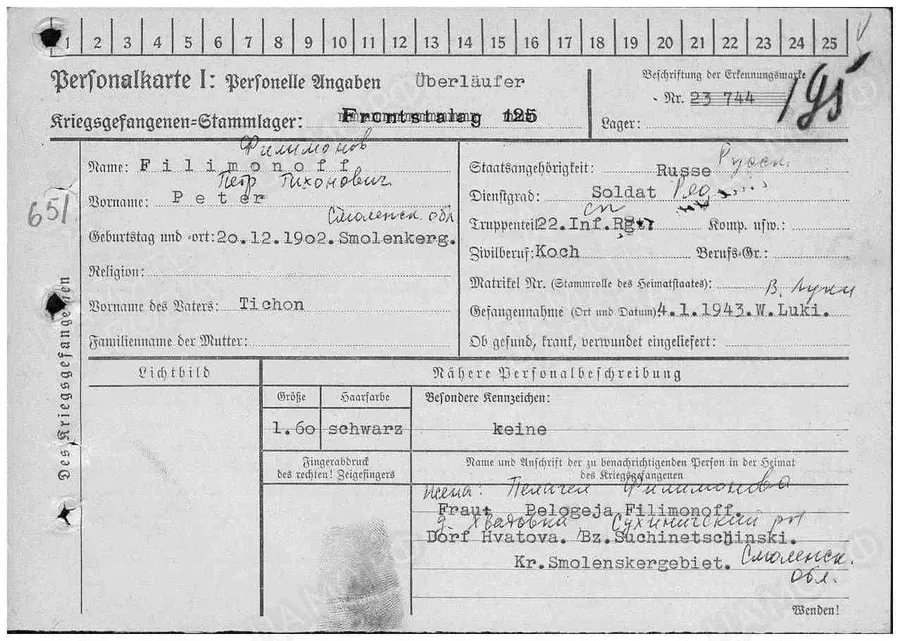 1 2 3 4 5 6 7 8 9 10 11 12 13 14 15 16 17 18 19 20 21 22 23 24 25
Personalkarte I: Personelle Angaben Überläufer
Beschriftung der Erkennungsmarke
Nr. 23 744
195
Kriegsgefangenen-Stammlager: Frontstalag 125
Lager:
Филимонов
Name: Filimonoff
Петр Тихонович
Vorname: Peter
651
Смоленск. обл
Geburtstag und -ort: 20.12.1902. Smolenkerg.
Religion:
Vorname des Vaters: Tichon
Familienname der Mutter:
Des Kriegsgefangenen
Русск.
Staatsangehörigkeit: Russe
Dienstgrad: Soldat
сп
Truppenteil 22.Inf.Rgt. Komp. usw.:
Zivilberuf: Koch Berufs-Gr.:
Matrikel Nr. (Stammrolle des Heimatstaates):
В. Луки
Gefangennahme (Ort und Datum): 4.1.1943.W.Luki.
Ob gesund, krank, verwundet eingeliefert:
Lichtbild
Nähere Personalbeschreibung
Größe Haarfarbe Besondere Kennzeichen:
1.60 schwarz keine
Fingerabdruck
des rechten! Zeigefingers
Name und Anschrift der zu benachrichtigenden Person in der Heimat
des Kriegsgefangenen
жена: Пелагея Филимонова
Fraut Pelogeja Filimonoff.
д. Хватовка Сухиничский рн
Dorf Hvatova. Bz.Suchinetschinski.
Kr.Smolenskergebiet. Смоленск.
обл.
Wenden!